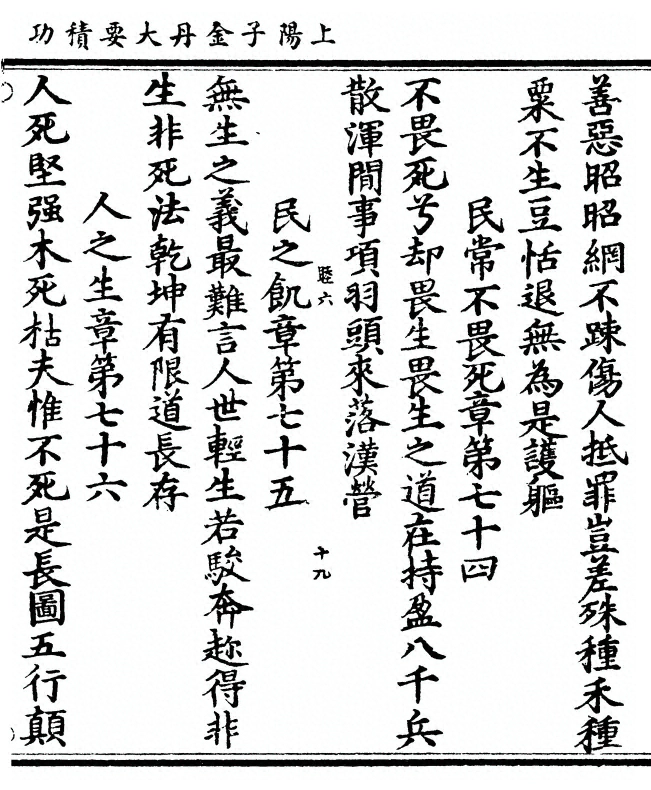 上陽子金丹大要積功
善惡昭昭網不踈傷人抵罪豈差殊種禾種
粟不生豆恬退無為是護軀
民常不畏死章第七十四
不畏死兮却畏生畏生之道在持盈八千兵
散渾閒事項羽頭來落漢營
睦六
十九
民之飢章第七十五
無生之義最難言人世輕生若駿奔趂得非
生非死法乾坤有限道長存
人之生章第七十六
人死堅强木死枯夫惟不死是長圖五行顛